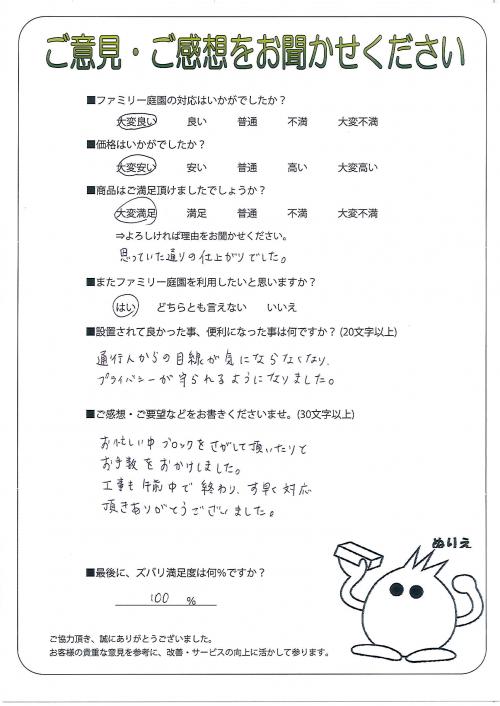 ご意見・ご感想をお聞かせください
■ファミリー庭園の対応はいかがでしたか？
大変良い 良い 普通 不満 大変不満
■価格はいかがでしたか？
大変安い 安い 普通 高い 大変高い
■商品はご満足頂けましたでしょうか？
大変満足 満足 普通 不満 大変不満
⇒よろしければ理由をお聞かせください。
思っていた通りの仕上がりでした。
■またファミリー庭園を利用したいと思いますか？
はい どちらとも言えない いいえ
■設置されて良かった事、便利になった事は何ですか？(20文字以上)
通行人からの目線が気にならなくなり、
プライバシーが守られるようになりました。
■ご感想・ご要望などをお書きくださいませ。(30文字以上)
お忙しい中ブロックをさがして頂いたりと
お手数をおかけしました。
工事も午前中で終わり、す早く対応
頂きありがとうございました。
ぬりえ
■最後に、ズバリ満足度は何％ですか？
100 %
ご協力頂き、誠にありがとうございました。
お客様の貴重な意見を参考に、改善・サービスの向上に活かして参ります。